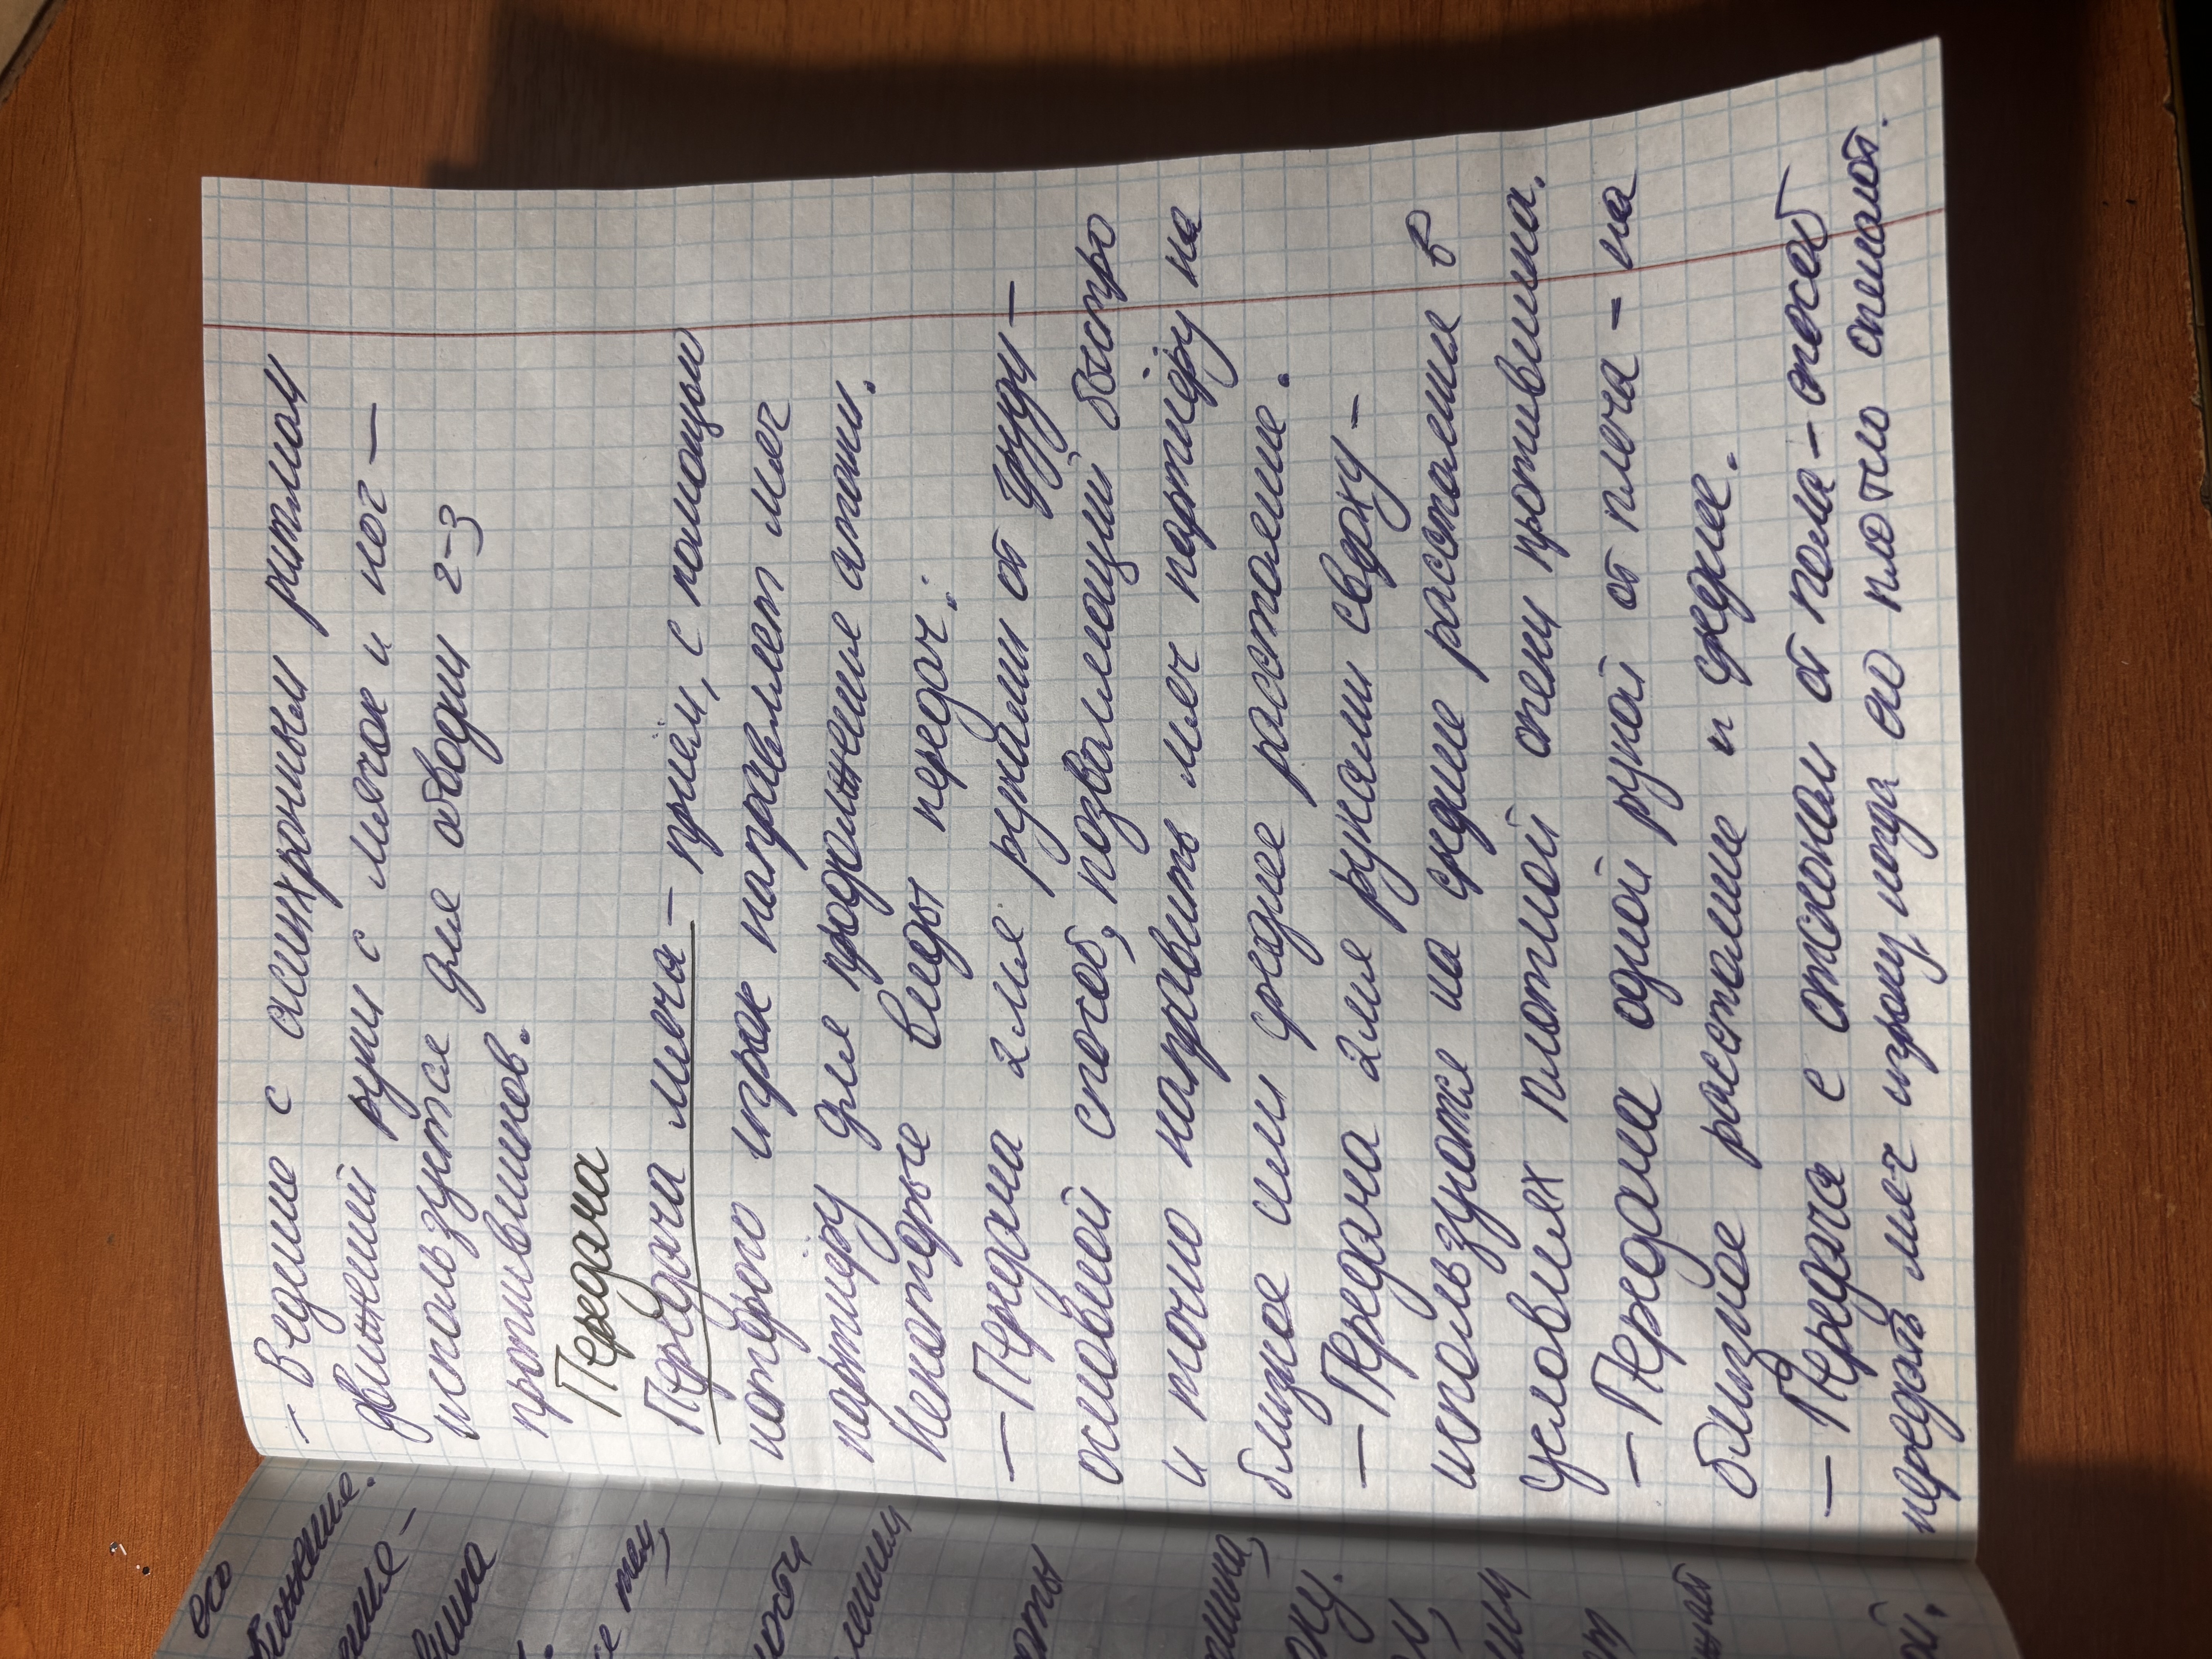 - Ведение с асинхронным ритмом
движений руки с мячом и ног —
используется для обводки 2-3
противников.
Передача
Передача мяча - приём, с помощью
которого игрок направляет мяч
партнёру для продолжение атаки.
Некоторые виды передач:
— Передача 2мя руками от груди —
основной способ, позволяющий быстро
и точно направить мяч партнёру на
близкое или среднее растояние.
— Передача 2мя руками сверху —
используете на средние расстояние в
условиях плотной опеки противника.
— Передача одной рукой от плеча - на
близкое расстояние и средние.
— Передача с отскоком от пола - способ
передать мяч игроку, когда его плотно опекают.
его